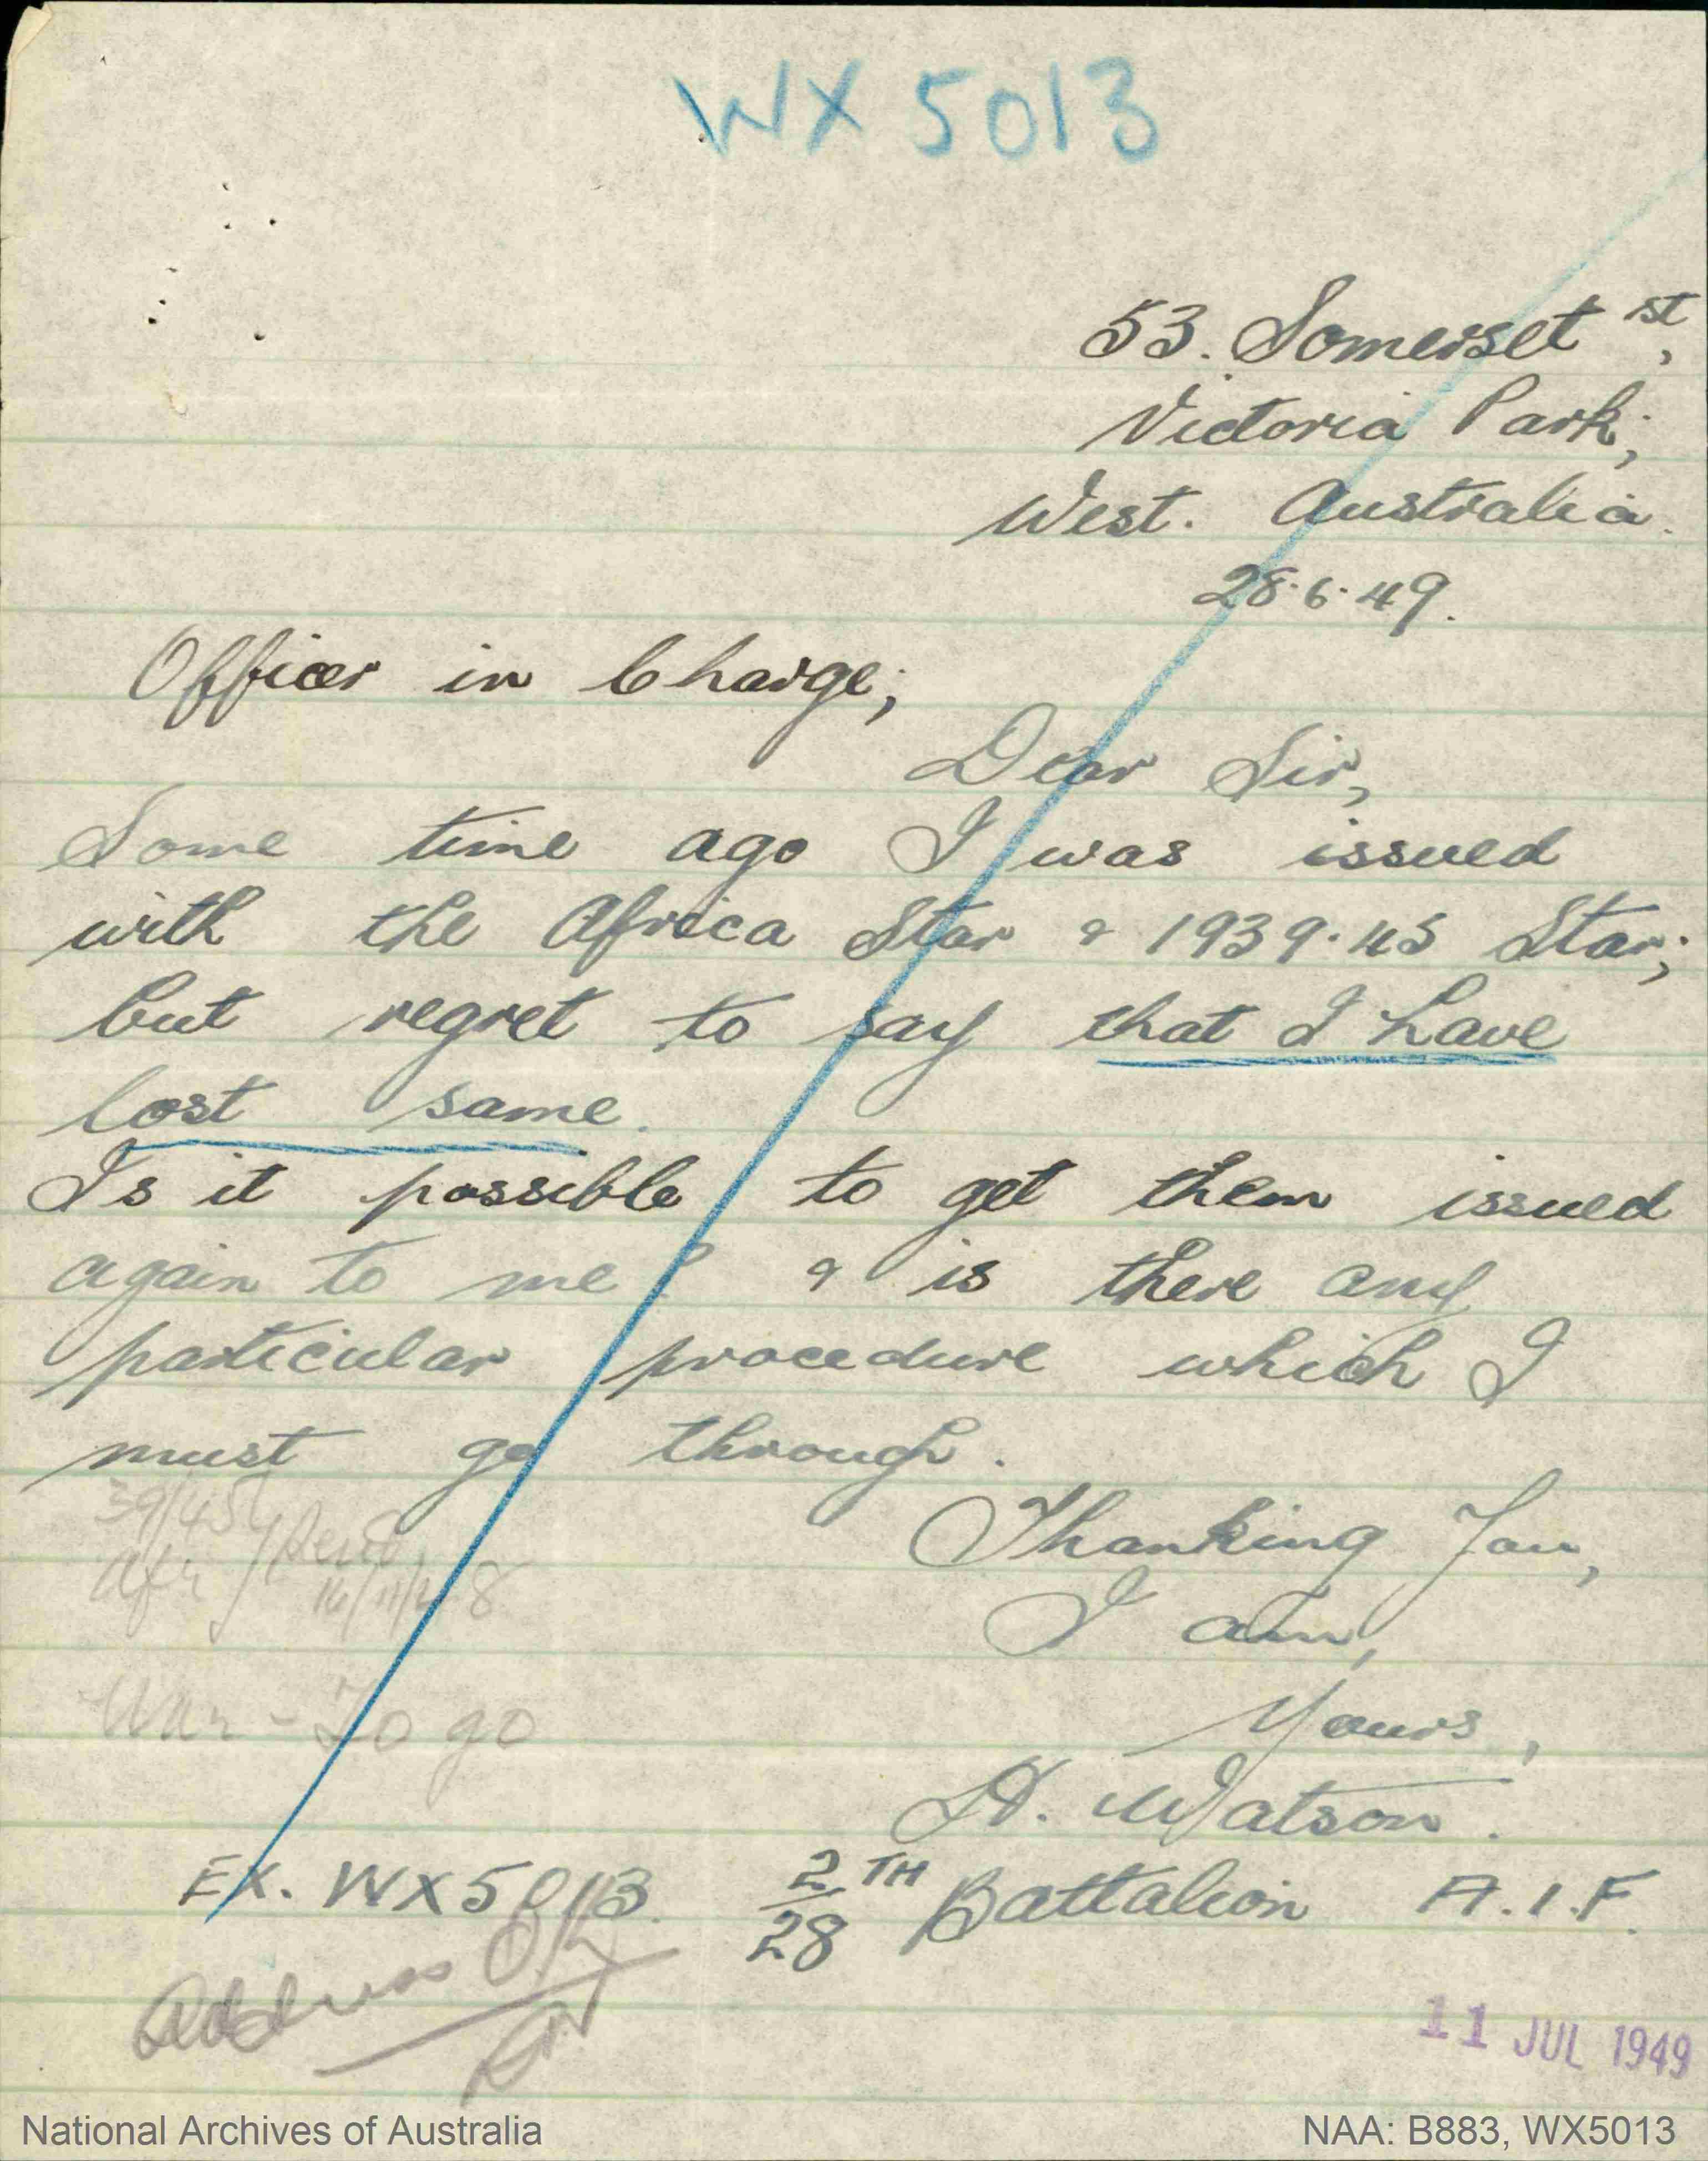 WX 5013
53. Somerset st,
Victoria Park,
West. Australia.
28.6.49.
Officer in Charge;
Dear Sir,
Some time ago I was issued
with the Africa Star & 1939.45 Star;
but regret to say that I have
lost same.
Is it possible to get them issued
again to me? & is there any
particular procedure which I
must go through.
39/45
Afr
16/11/48
Thanking You,
I am,
War - To go
Yours,
A. Watson.
EX. WX5013. 2/28 TH Battalion A.I.F.
Address OK
11 JUL 1949
National Archives of Australia
NAA: B883, WX5013